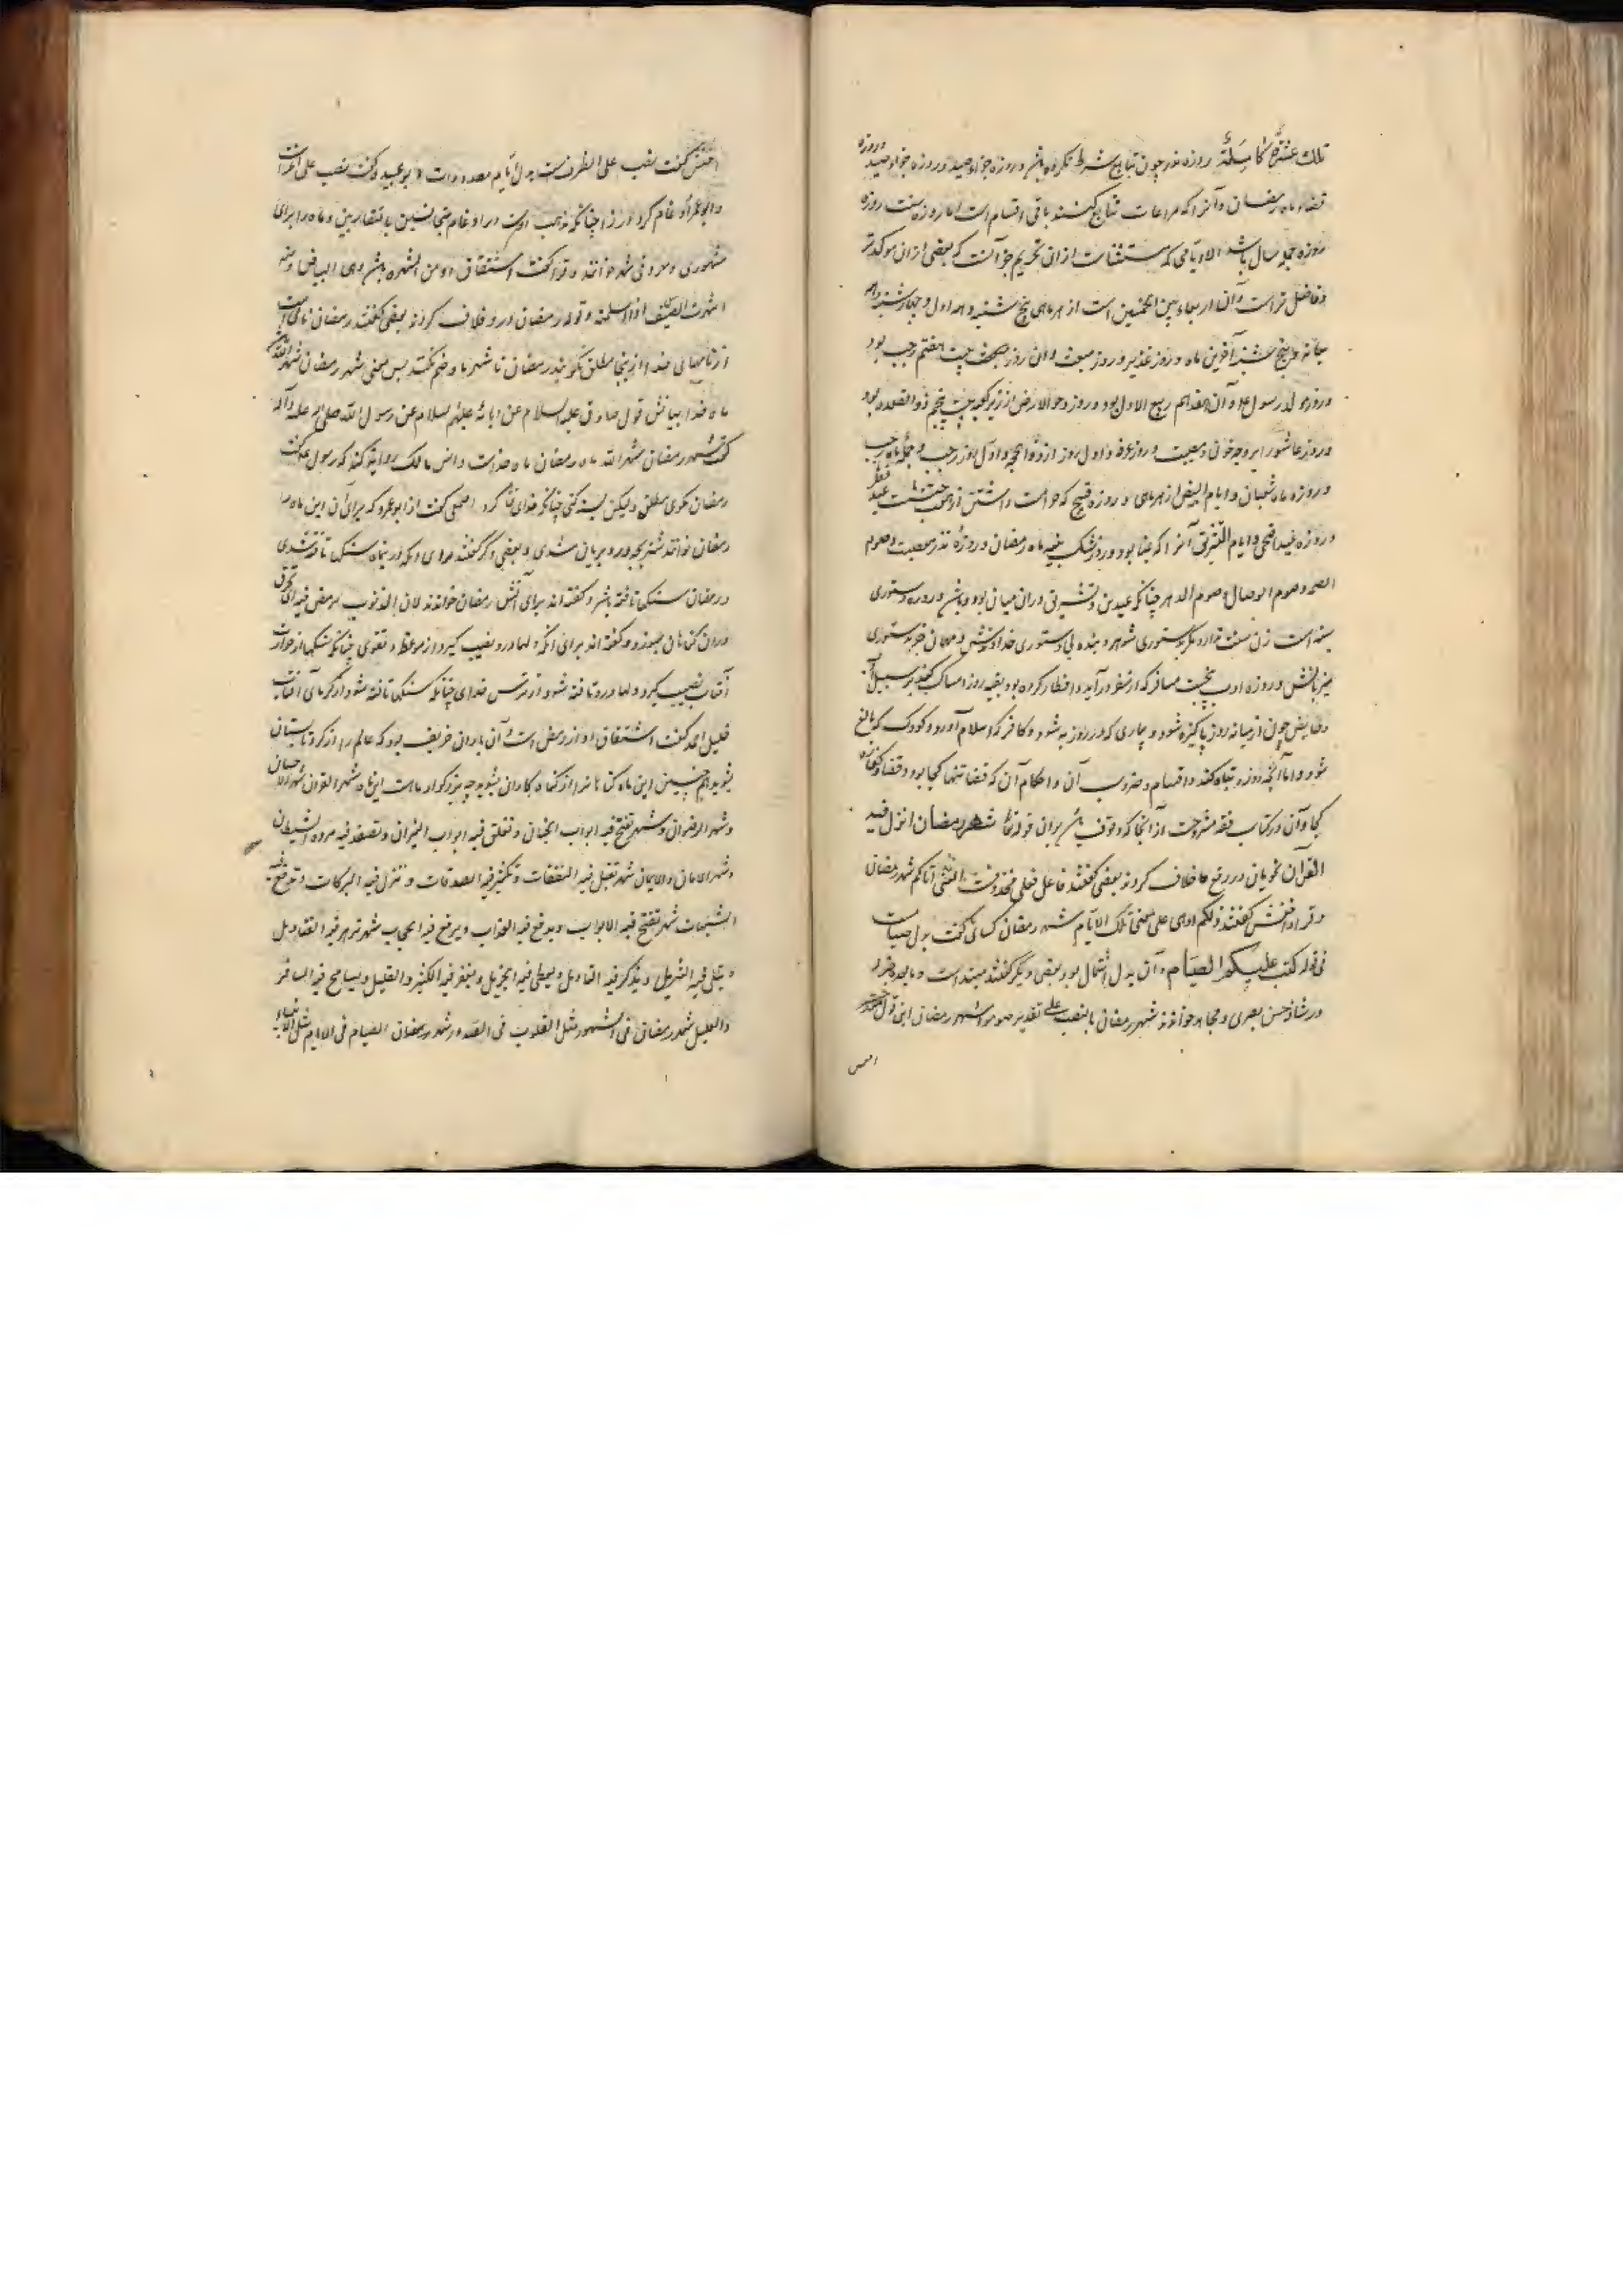 تلك عَشَرَةٌ كَامِلَةٌ روزه نذر چون تتابع شرط نکرده باشد و روزه جزاء صید و روزه
قضاء ماه رمضان و آنرا که مراعات تتابع کنند باقی اقسام است اما روزه سنت روزه
روزه جمله سال باشد الا ایامی که مستثنات از ان تحریم جز آنست که بعضی ازان موکدتر
و فاضل تر است و آن اربعاء بین الخمیسین است از هر ماهی پنج شنبه دهه اول و چهارشنبه دهه
میانه و پنج شنبه آخرین ماه و روز غدیر و روز مبعث و ان روز بیست هفتم رجب بود
و روز مولد رسول ع و آن هفدهم ربیع الاول بود و روز دحو الارض از زیر کعبه بیست پنجم ذو القعده بود
و روز عاشورا بر وجه حزن و مصیبت و روز عرفه و اول روز از ذو الحجه و اول روز رجب و جمله ماه رجب
و روزه ماه شعبان و ایام البیض از هر ماهی و روزه قبیح که حرامست داشتن آن هشت است عید فطر
و روزه عید اضحی و ایام التشریق آنرا که بمنا بود و روز شک بنیه ماه رمضان و روزه نذر معصیت و صوم
الصمت و صوم الوصال و صوم الدهر چنانکه عیدین و تشریق دران میان بود و روزه بدستوری
سه است زن سنت ندارد مگر بدستوری شوهر و بنده بی دستوری خداوندش و مهمان جز بدستوری
میزبانش و روزه ادب پنج است مسافر که از سفر درآید و افطار کرده بود بقیه روز امساک کند بر سبیل
و حایض چون از میانه روز پاکیزه شود و بیماری که در روز به شود و کافر که اسلام آورد و کودک که بالغ
شود و اما آنچه روزه تباه کند و اقسام و ضروب آن و احکام آن که قضا تنها کجا بود و قضا و کفاره
کجا و آن در کتاب فقه مشروحست از آنجا که وقوف باشد بر ان قوله تعالی شهر رمضان انزل فیه
القرآن نحویان در رفع خلاف کردند بعضی گفتند فاعل فعلی محذوفست اتاکم شهر رمضان
و فراء و اخفش گفتند ذلکم او هی علی معنی تلک الایام شهر رمضان کسائی گفت بدل صیامست
فی قوله کتب علیکم الصیام و آن بدل اشتمال بود و بعضی دیگر گفتند مبتداست و ما بعده خبر
در شاذ حسن بصری و مجاهد خواندند شهر رمضان بالنصب علی تقدیر صوموا شهر رمضان این قول
اخفش گفت نصب علی الظرفست بدل ایام معدودات و ابو عبید گفت نصب علی
و ابو عمرو ادغام کرد چنانکه مذهب اوست در ادغام متجانسین یا متقاربین و ماه را برای
مشهوری و معروفی شهر خوانند و فراء گفت اشتقاق او من الشهره باشد وهی البیاض ومنه
شهرت السیف اذا سللته و قوله رمضان درو خلاف کردند بعضی گفتند رمضان نامی است
از نامهای خدا و از ینجا مطلق نگویند رمضان تا شهر با او ضم نکنند پس معنی شهر رمضان شهر الله
ماه خدا بیانش قول صادق علیه السلام عن ابائه علیهم السلام عن رسول الله صلی الله علیه و آله
گفت شهر رمضان شهر الله ماه رمضان ماه خداست و انس مالک روایت کند که رسول ع گفت
رمضان مگوی مطلق ولیکن نسبت کنی چنانکه خدای کرد اصمعی گفت از ابو عمرو که برای آن این ماه را
رمضان خوانند شتر بچه درو بریان شدی و بعضی دیگر گفتند درین ماه سنگ تافته شدی
و رمضان سنگ تافته باشد و گفته اند برای آتش رمضان خواندند لان الذنوب ترمض فیه ای تحرق
دران گناهان بسوزد و گفته اند برای آنکه دلها درو نصیب گیرد از موعظه و تقوی چنانکه سنگها از حرارت
آفتاب نصیب گیرد و دلها درو تافته شود از ترس خدای چنانکه سنگها تافته شود از گرمای آفتاب
خلیل احمد گفت اشتقاق او از رمض است و آن باران خریف بود که عالم را از گرد تابستان
بشوید همچنین این ماه گناهانرا از گناه کاران بشوید چه بزرگوار ماهست این ماه شهر القرآن شهر الاحسان
و شهر الرضوان و شهر تفتح فیه ابواب الجنان و تغلق فیه ابواب النیران و تصفد فیه مردة الشیطان
و شهر الامان والایمان شهر تقبل فیه النفقات و تکثر فیه الصدقات و تنزل فیه البرکات و ترفع فیه
السیئات شهر تفتح فیه الابواب ویرفع فیه العذاب ویرفع فیه الحجاب شهر تزهر فیه القنادیل
و یتلی فیه التنزیل و یعطی فیه الجزیل و یغفر فیه الکثیر والقلیل و یسامح فیه المسافر
والعلیل شهر رمضان فی الشهور مثل القلوب فی الصدور شهر رمضان الصیام فی الایام مثل الانبیاء